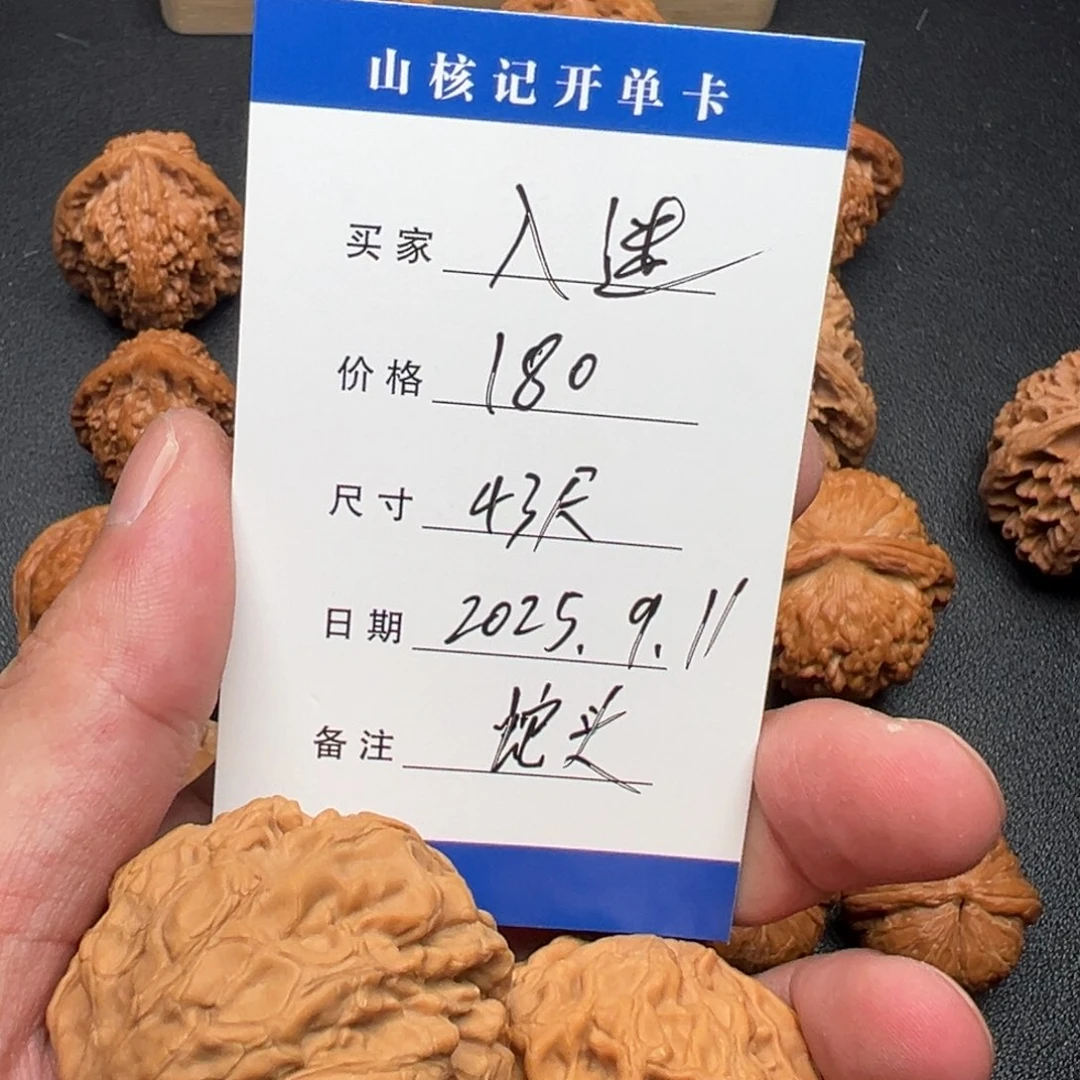 山核记开单卡
买家 入迷
价格 180
尺寸 43尺
日期 2025.9.11
备注 蛇头